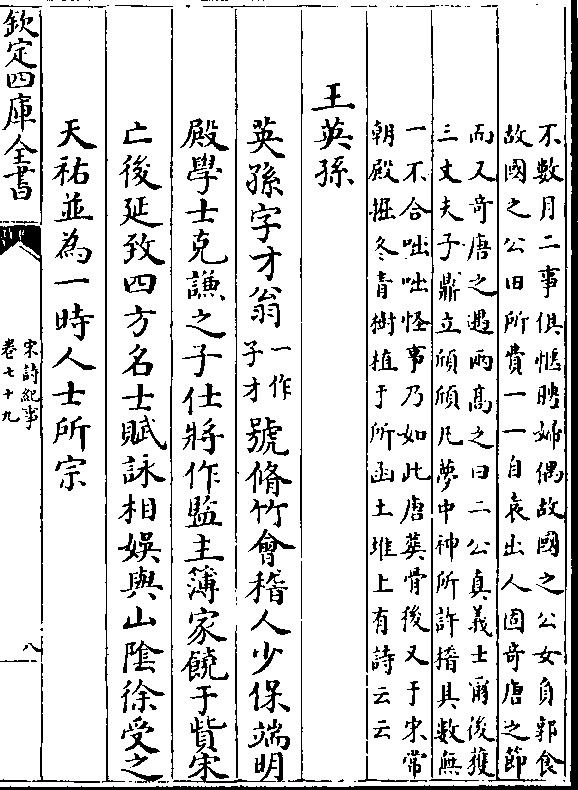 不數月二事俱愜聘婦偶故國之公女負郭食
故國之公田所費一一自袁出人固奇唐之節
而又奇唐之遇兩高之曰二公真義士爾後獲
三丈夫子鼎立頎頎凡夢中神所許揩具數無
一不合咄咄怪事乃如此唐葬骨後又于宋常
朝殿掘冬青樹植于所函土堆上有詩云云
王英孫
英孫字才翁一作子才號脩竹會稽人少保端明
殿學士克謙之子仕將作監主簿家饒于貲宋
亡後延致四方名士賦詠相娛與山陰徐受之
天祐並為一時人士所宗
欽定四庫全書
宋詩紀事
卷七十九
八